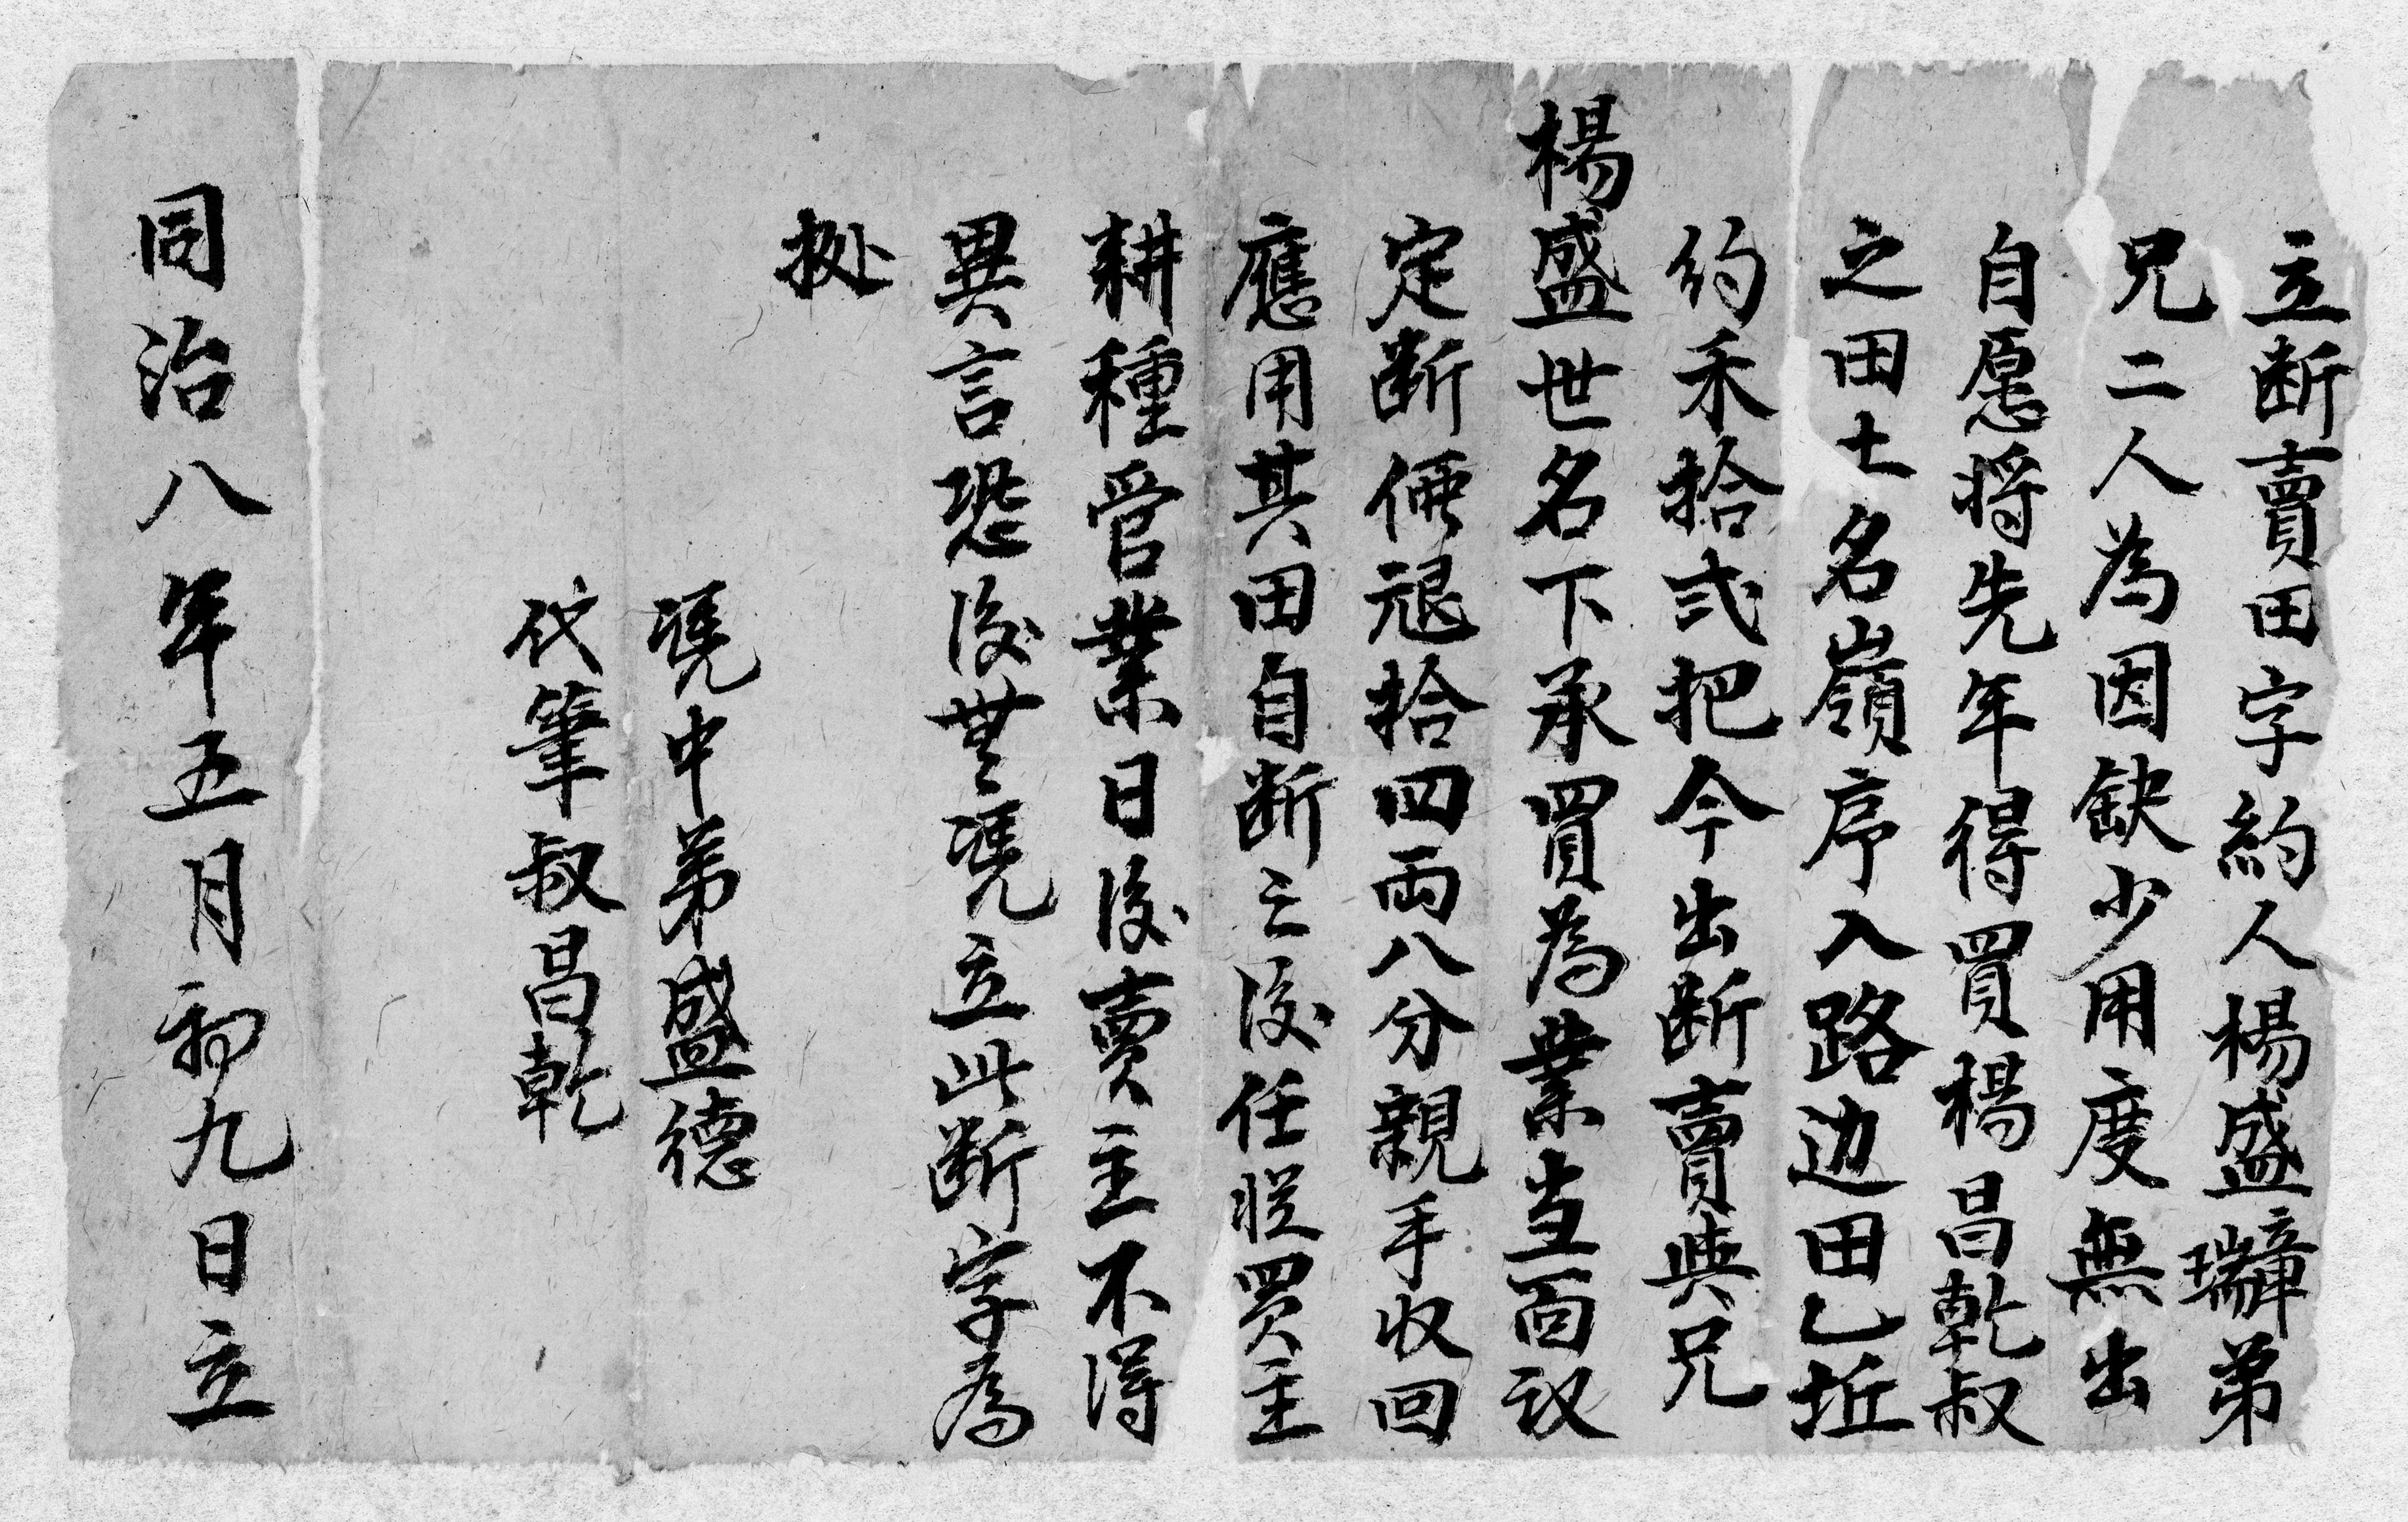 立断賣田字約人楊盛瑞璋弟
兄二人為因缺少用度無出
自愿将先年得買楊昌乾叔
之田土名嶺序入路边田乙坵
约禾拾弍把今出断賣與兄
楊盛世名下承買為業当面议
定断価艮拾四両八分親手收回
應用其田自断之後任从買主
耕種管業日後賣主不得
異言恐後無凴立此断字為
㨿
凴中弟盛德
代筆叔昌乾
同治八年五月初九日立